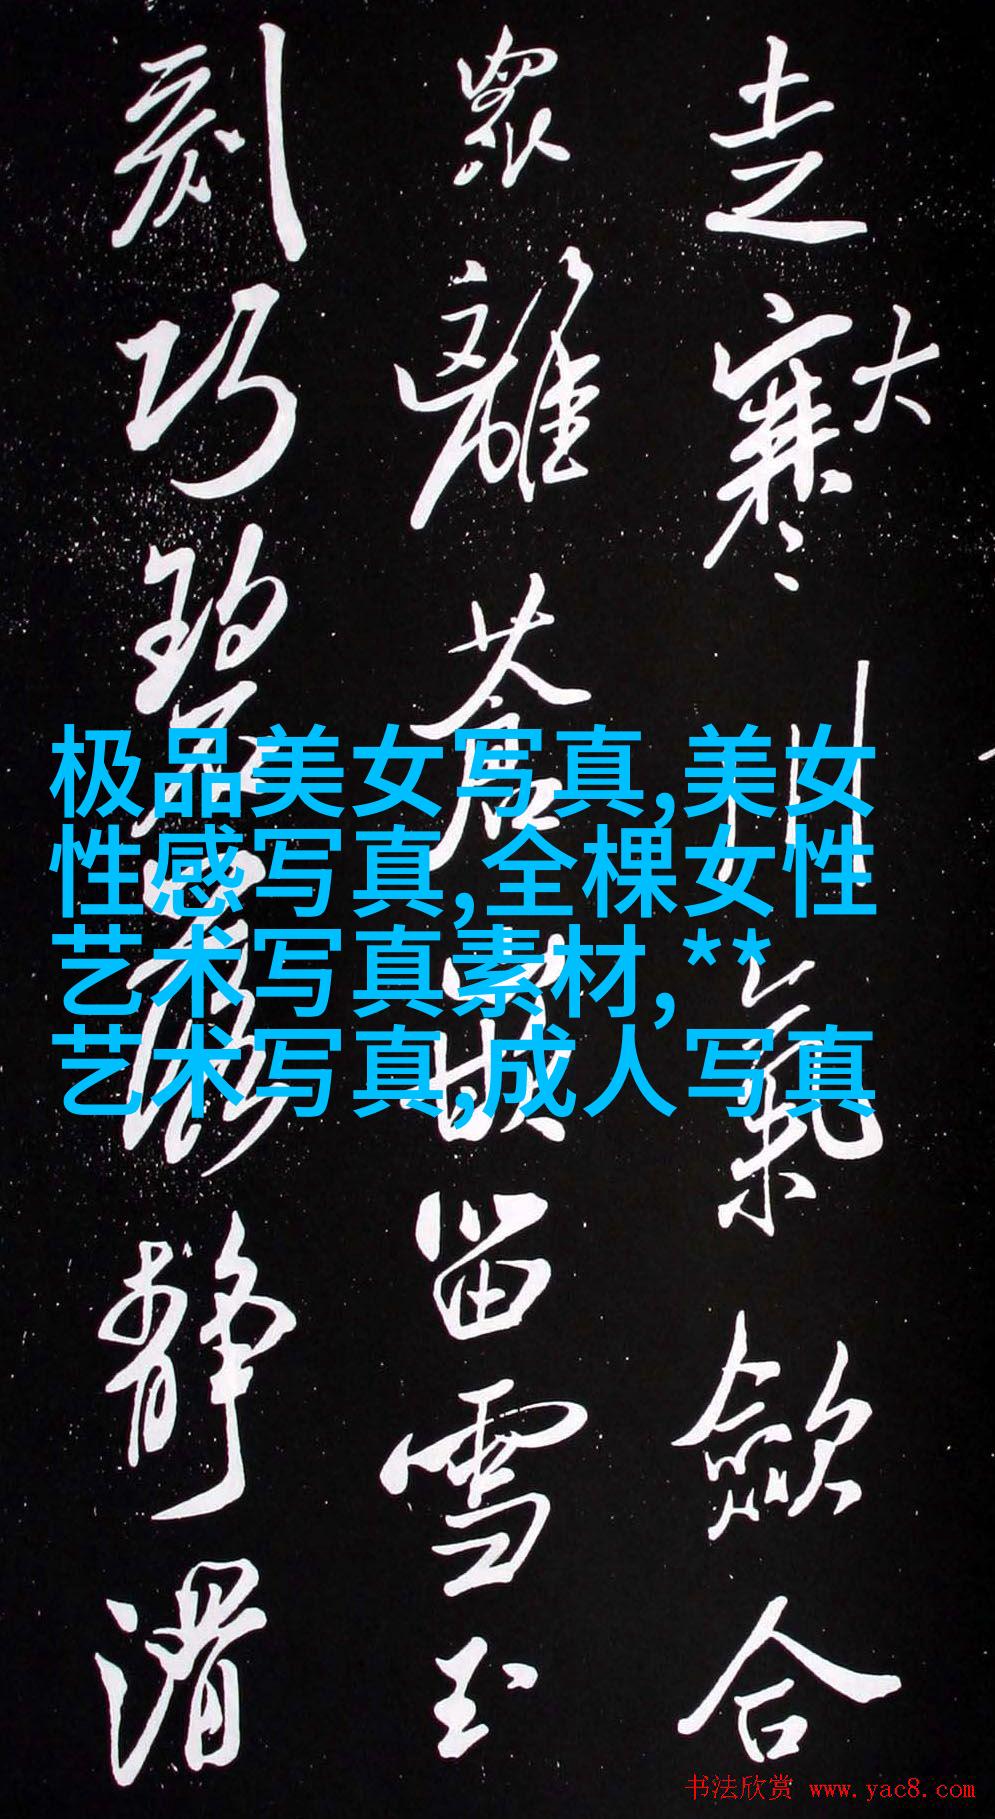 寒大川氣歛合
離蒼留雪玉
刻巧碧靜
极品美女写真,美女
性感写真,全棵女性
艺术写真素材,**
艺术写真,成人写真
书法欣赏 www.yac8.com